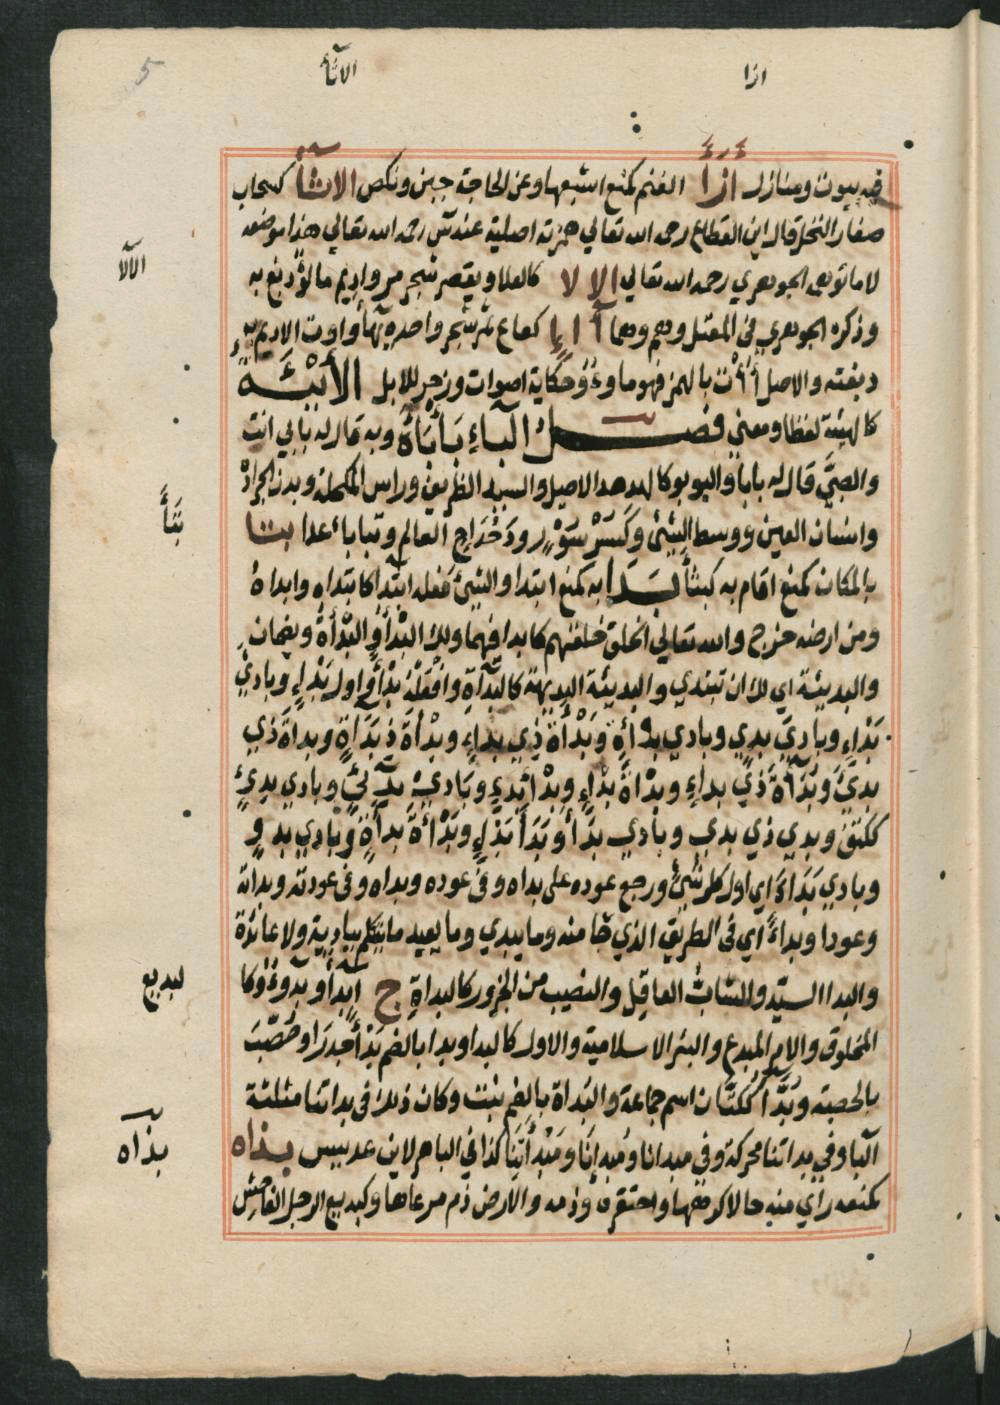 5
الاثأ
ازا
فيه بيوت ومنازل ازأ الغنم كمنع اشبعها وعن الحاجة جبن ونكص الاشأ كسحاب
صغار النخل قال ابن القطاع رحمه الله تعالي همزته اصلية عند س رحمه الله تعالي هذا موضعه
لا ما توهم الجوهري رحمه الله تعالي الالا كالعلا ويقصر شجر مر واديم مالوء دبغ به
وذكره الجوهري في المعتل وهم وهما آ ا ا كعاع ثمر شجر واحدته بهاء واوت الاديم به
دبغته والاصل أأت بالهمز فهو ماووء وحكاية اصوات وزجر للابل الأيئة
كالهيئة لفظا ومعني فصل الباء بأبأه وبه قال له بابي انت
والصبي قال له بابا والبوبو كالهدهد الاصيل والسيد الظريف وراس المكحلة وبدن الجرادة
وانسان العين ووسط الشئ وكسرسور ودحداح العالم وتبابا عدا بتا
بالمكان كمنع اقام به كبثأ بدا به كمنع ابتدا والشئ فعله ابتدا كابتداه وابداه
ومن ارضه خرج والله تعالي الخلق خلقهم كابدا فيهما ولك البدأ والبدأة ويضمان
والبديئة اي لك ان تبتدي والبديئة البديهة كالبداءة وافعله بدأ واول بدء وبادي
بداء وبادي بدي وبادي بداة وبدأة ذي بداء وبدأة ذي بداة وبداة ذي
بدئ وبدأة ذي بداء وبدأة بداء وبدأ بدء وبادي بدئ وبادي بدئ
ككتف وبدي ذي بدي وبادي بدأ وبدأ بدء وبدأة بدأة وبادي بدو
وبادي بداء اي اول كل شئ ورجع عوده على بداه وفي عوده وبداه وفي عودته وبداته
وعودا وبداءً اي في الطريق الذي جا منه وما يبدي وما يعيد ما يتكلم ببادية ولا عائدة
والبدا السيد والشاب العاقل والنصيب من الجزور كالبداة ج ابدأ وبدوء وكا
المخلوق والامر المبدع والبئر الاسلامية والاول كالبدا وبدا بالضم بدأ جدر او حصب
بالحصبة وبدا ككتان اسم جماعة والبداة بالضم نبت وكان ذلك في بداتنا مثلثة
البا وفي بداتنا محركة وفي مبدانا ومبدانا ومبدأتنا كذا في الباهر لابن عديس بذاه
كمنعه راي منه حالا كرهها واحتقره وذمه والارض ذم مرعاها وكبديع الرجل الفاحش
الآلا
بتأ
لبديع
بذاه